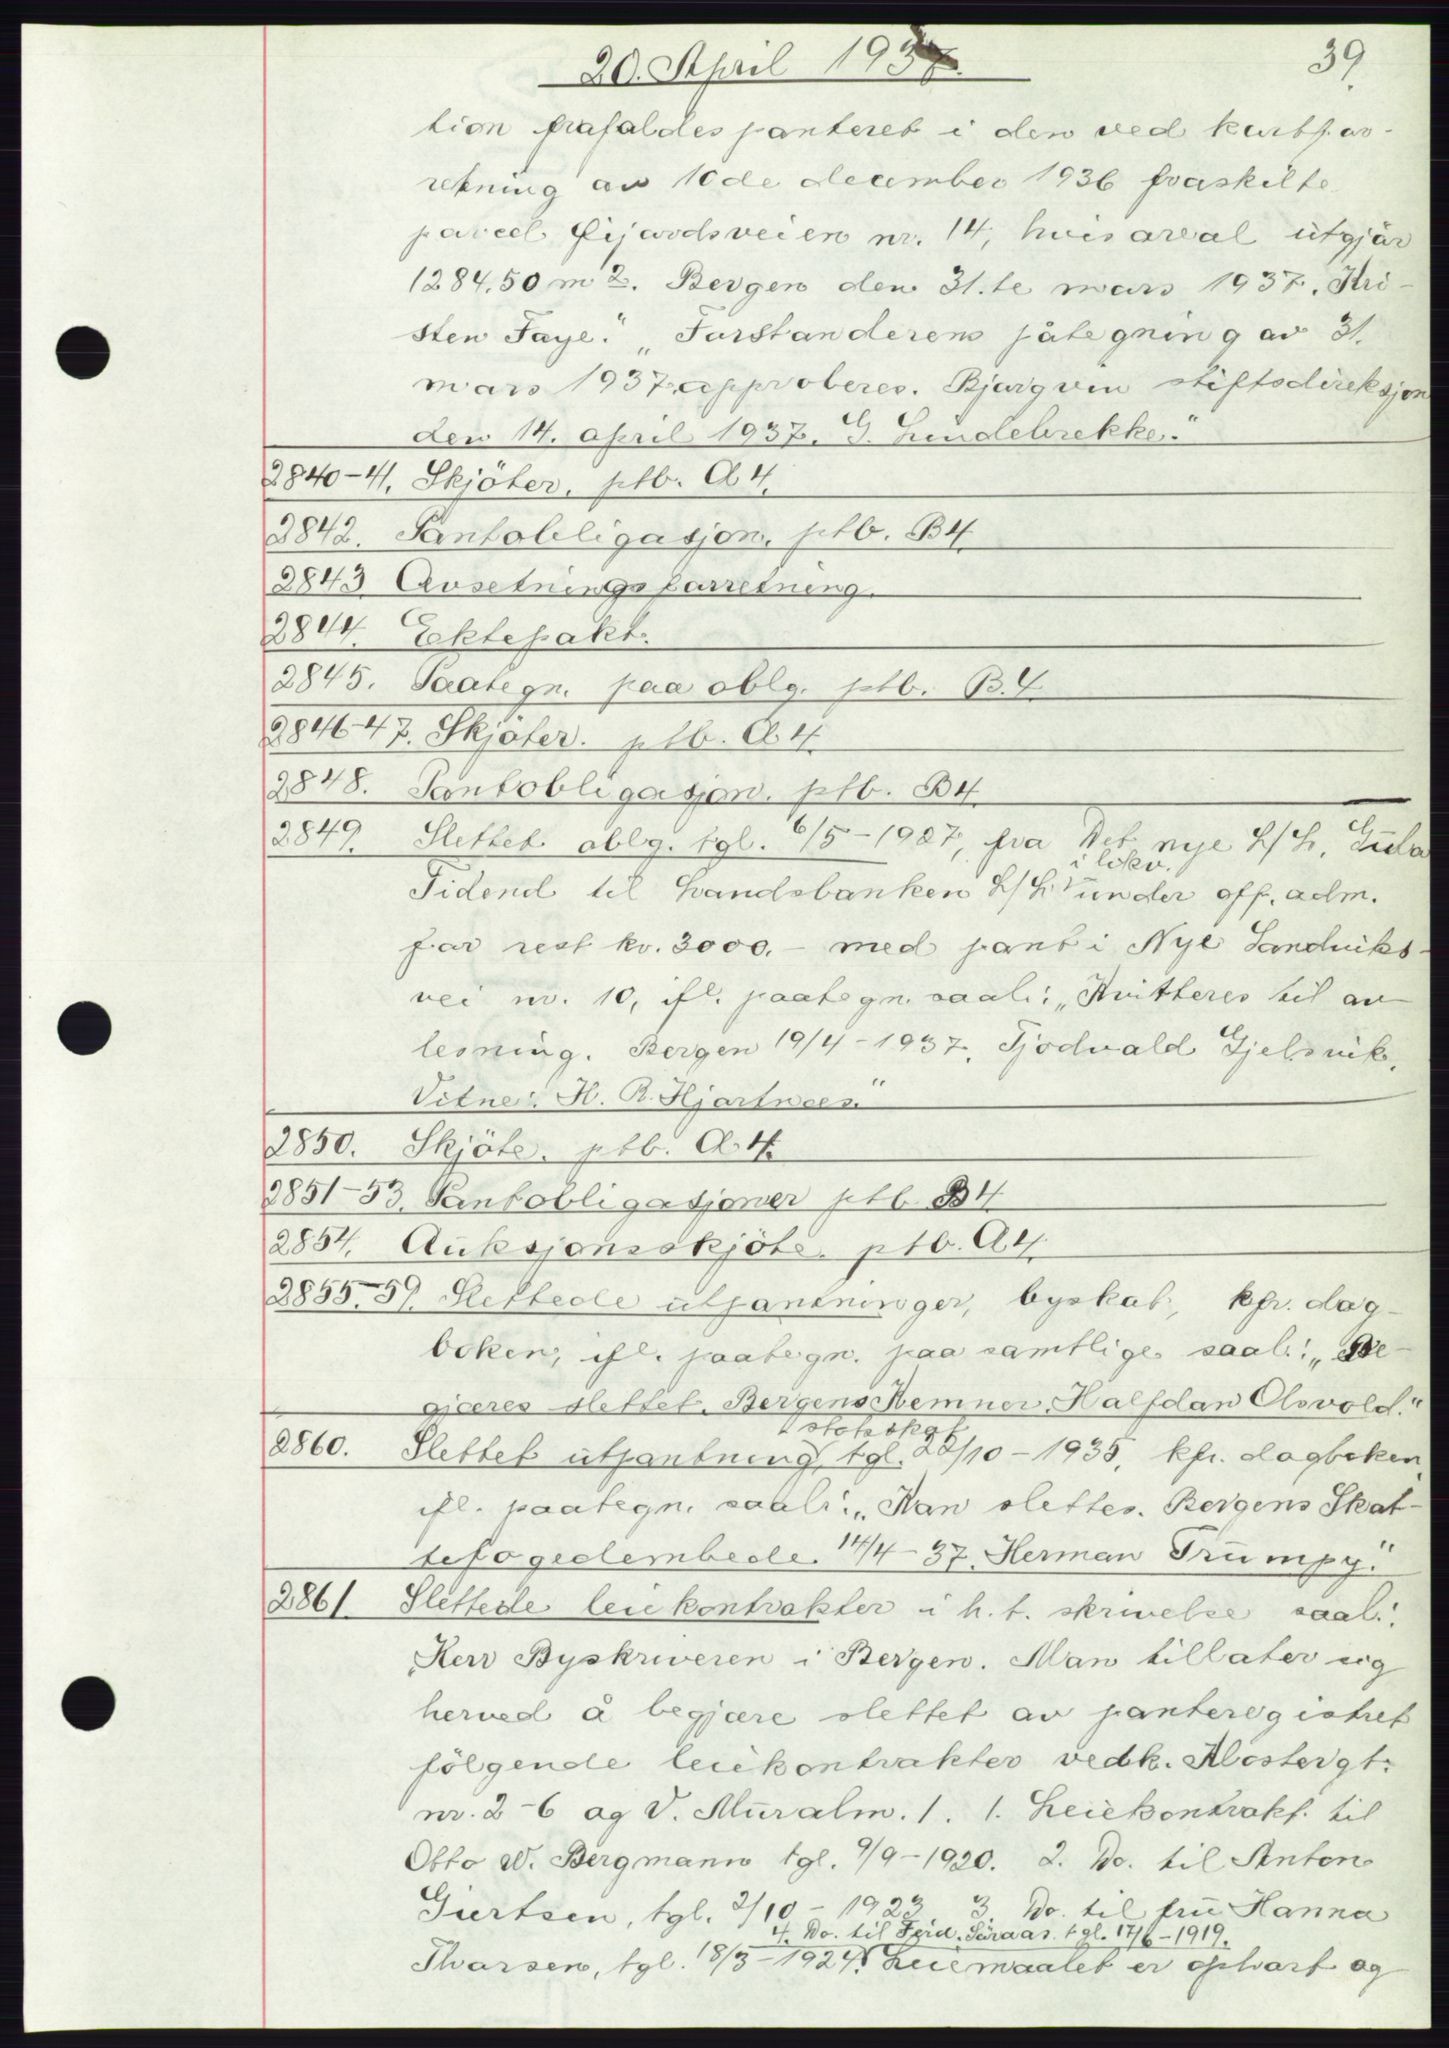 20. April 1937.
39.
tion frafaldes panteret i den ved kartfor-
retning av 10de december 1936 fraskilte
parcel Eijaodsveien nr. 14, hvis areal utgjør
1284.50 m2. Bergen den 31.te mars 1937. Kri-
sten Faye." "Forstanderens påtegning av 31.
mars 1937 approberes. Bjørgvin stiftsdireksjon
den 14. april 1937. G. Lindebrekke."
2840-41. Skjöter. ptb. A4.
2842. Pantobligasjon. ptb. B4.
2843. Avsetningsforretning.
2844. Ektepakt.
2845. Paategn. paa oblg. ptb. B.4.
2846-47. Skjöter. ptb. A4.
2848. Pantobligasjon. ptb. B4.
2849. Slettet oblg. tgl. 6/5-1927, fra Det nye L/L. Gula
Tidend til Landsbanken L/L i likv. under off. adm.
for rest kr. 3000.- med pant i Nye Sandviks-
vei nr. 10, ifl. paategn. saal.: "Kvitteres til av-
lesning. Bergen 19/4-1937. Tjodvald Gjelsvik.
Vitne: H. R. Hjartnæs."
2850. Skjöte. ptb. A4.
2851-53. Pantobligasjoner ptb. B4.
2854. Auksjonsskjöte. ptb. A4.
2855-59. Slettede utpantninger, byskat, kfr. dag-
boken, ifl. paategn. paa samtlige saal.: "Be-
gjæres slettet. Bergens Kemner. Halfdan Olsvold."
2860. Slettet utpantning, statsskat tgl. 22/10-1935, kfr. dagboken,
ifl. paategn. saal.: "Kan slettes. Bergens Skat-
tefogedembede. 14/4-37. Herman Trumpy."
2861. Slettede leiekontrakter i h. t. skrivelse saal.:
"Herr Byskriveren i Bergen. Man tillater sig
herved å begjære slettet av panteregistret
fölgende leiekontrakter vedk. Klostergt.
nr. 2-6 og V. Muralm. 1. 1. Leiekontrakt til
Otto W. Bergmann tgl. 9/9-1920. 2. Do. til Anton
Giertsen, tgl. 2/10-1923 3 Do. til fru Hanna
4. Do. til Ferd. Säraas. tgl. 17/6-1919.
Thorsen, tgl. 18/3-1924. Leiemaalet er ophørt og